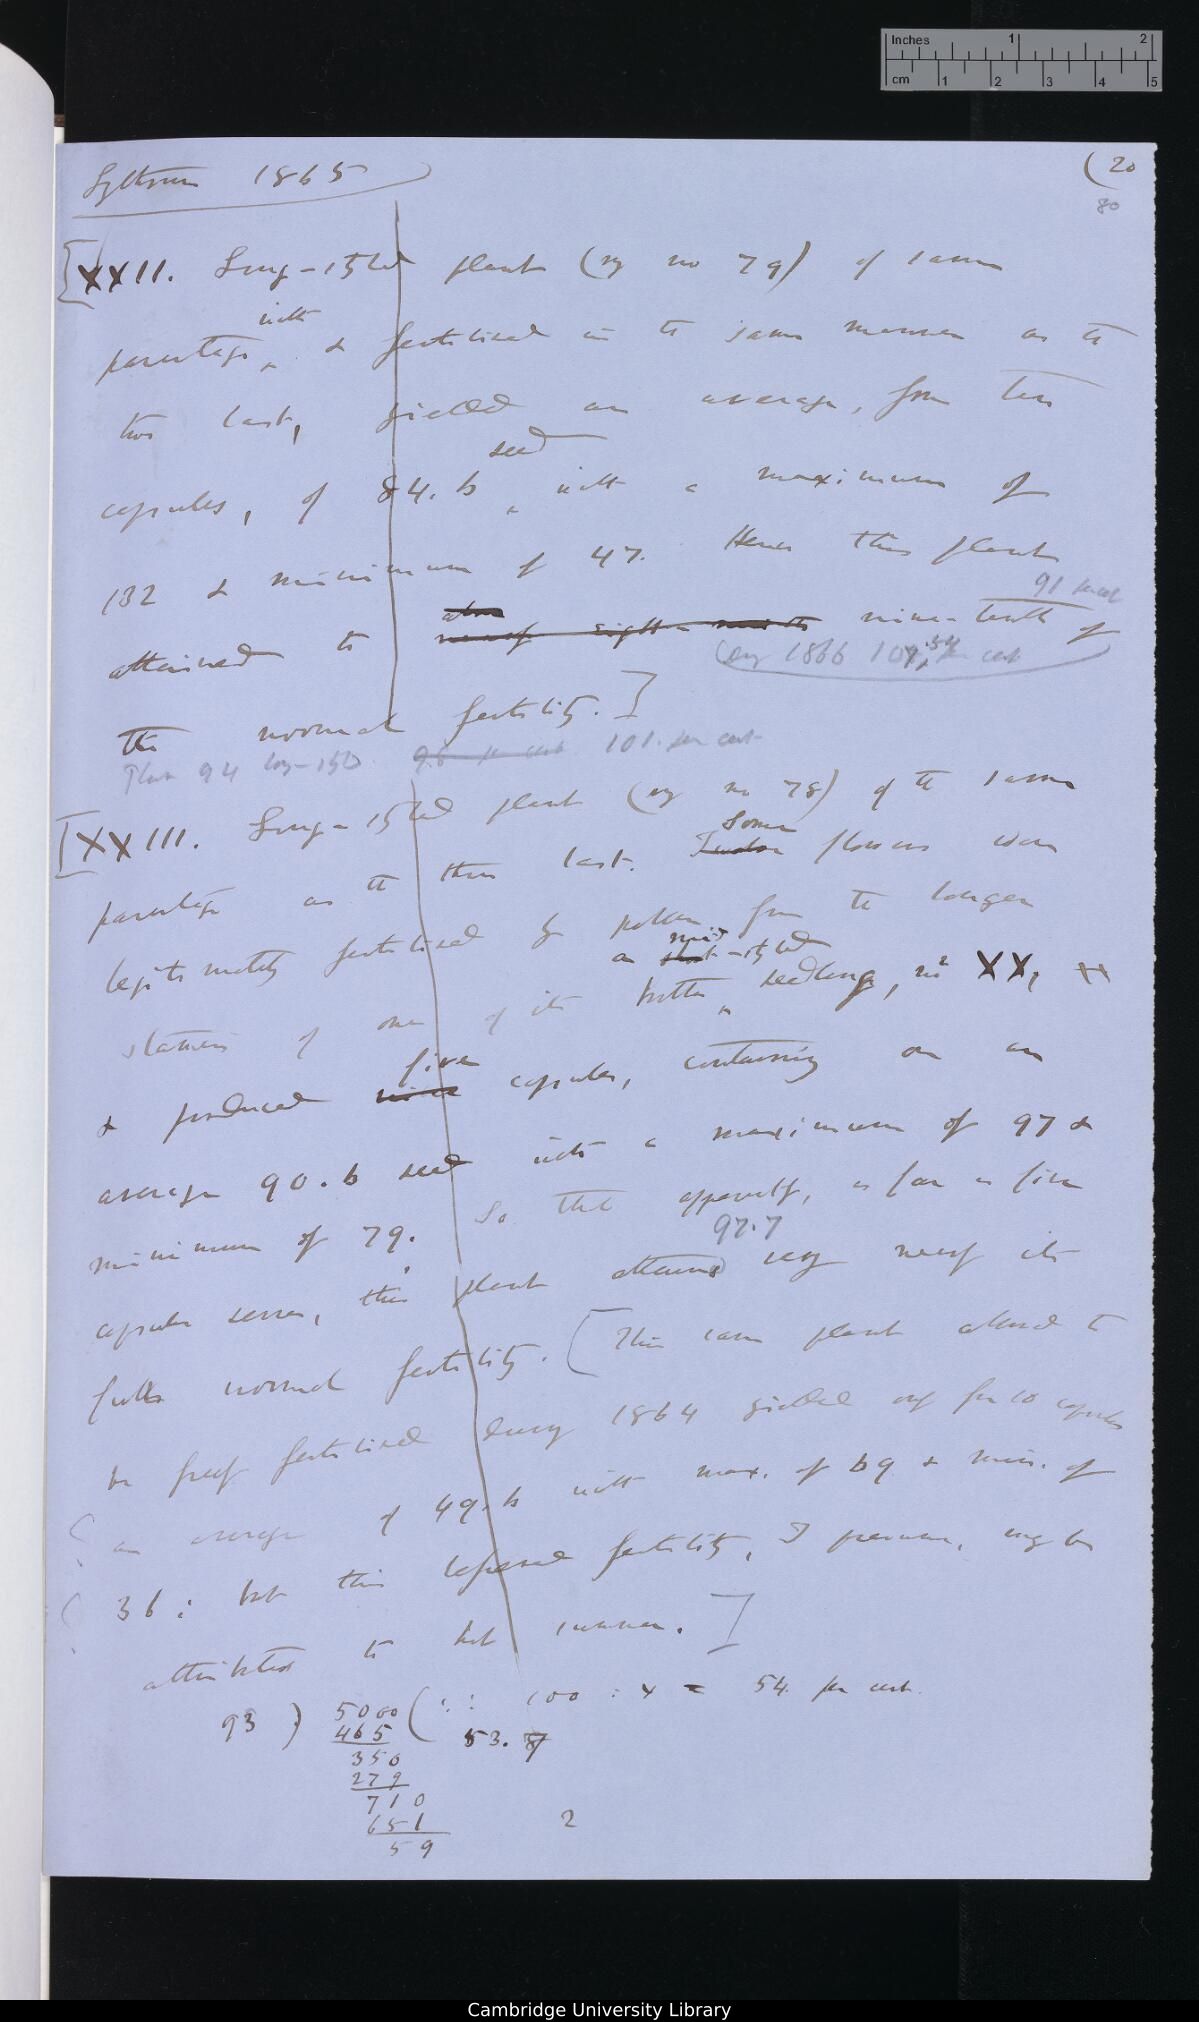 Inches 1 2
cm 1 2 3 4 5
Lythrum 1865
(20
80
[XXII. Long-styled plant (my no 79) of same
with
parentage, & fertilised in the same manner as the
two last, yielded an average, from ten
seed
capsules, of 84.6 with a maximum of
132 & minimum of 47. Hence this plant
91 per cent
attained to nearly eight nine-tenth of
1866 per cent
the normal fertility.]
Plant 94 long-styled 96 per cent 101. per cent
[XXIII. Long-styled plant (my no 78) of the same
Some
parentage as the three last. Twelve flowers were
legitimately fertilised by pollen from the longer
a mid-styled
stamens of one of its brother seedlings, no XX,
five
& produced nine capsules, containing on an
average 90.6 seed with a maximum of 97 &
minimum of 79. So that apparently, as far as five
97.7
capsules serve, this plant attained very nearly its
full normal fertility. (This same plant allowed to
be freely fertilised during 1864 yielded only from 10 capsules
an average of 49.6 with max. of 69 & min. of
36; but this lessened fertility, I presume, may be
attributed to hot summer.]
93 ) 5000 ( :: 100 : x = 54. per cent.
465 53.7
350
279
710
651
59
2
Cambridge University Library